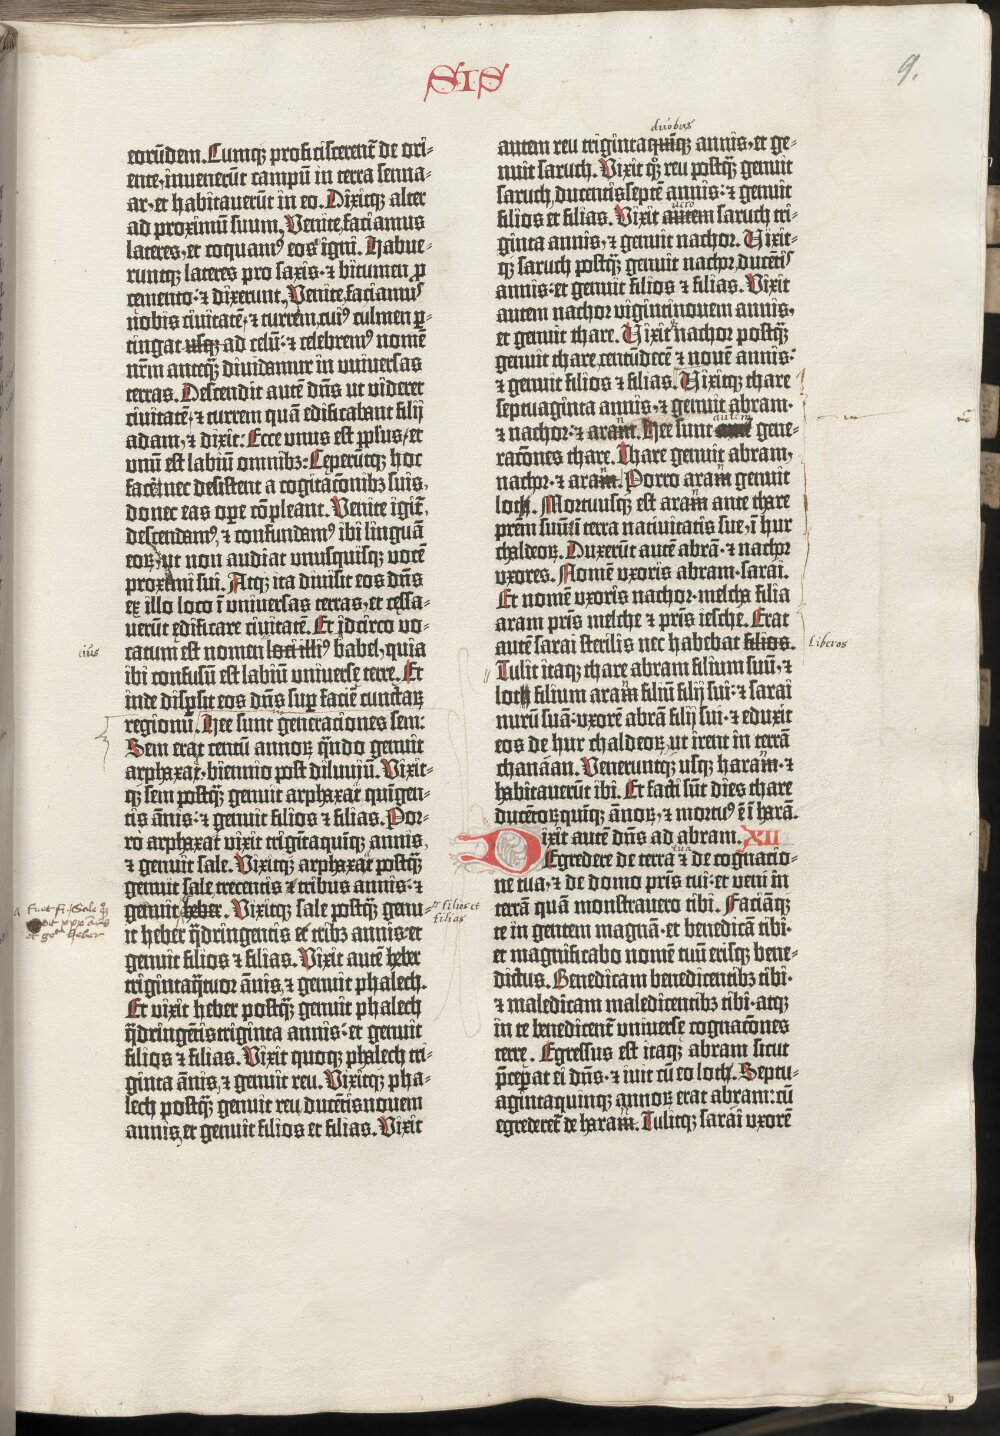 SIS
9.
eorūdem. Cumqꝫ proficiscerent̄ de ori⸗
ente, inuenerūt campū in terra senna⸗
ar, et habitauerūt in eo. Dixitqꝫ alter
ad proximū suum. Venite, faciamus
lateres, et coquamꝰ eos igni. Habue⸗
runtqꝫ lateres pro saxis· ⁊ bitumen ꝓ
cemento: ⁊ dixerunt. Venite faciamuſ
nobis ciuitatē, ⁊ turrem, cuiꝰ culmen ꝑ⸗
tingat usqꝫ ad celū: ⁊ celebremꝰ nomē
nr̄m anteqꝫ̄ diuidamur in vniuersas
terras. Descendit autē dn̄s ut videret
ciuitatē, ⁊ turrem quā edificabant filij
adam, ⁊ dixit: Ecce vnus est ppl̄us, et
vnū est labiū omnibꝫ: Ceperūtqꝫ hoc
facē: nec desistent a cogitac̄onibꝫ suis,
donec eas ope cōpleant. Venite igit̄,
descendamꝰ, ⁊ confundamꝰ ibi linguā
eoꝝ, ut non audiat vnusquisqꝫ vocē
proximi sui. Atqꝫ ita diuisit eos dn̄s
ex illo loco ī vniuersas terras, et cessa⸗
uerūt edificare ciuitatē. Et idcirco vo⸗
eius
catum est nomen loci illiꝰ babel, quia
ibi confusū est labiū vniuerse terre. Et
inde dispsit eos dn̄s sup̄ faciē cunctaꝝ
regionū. Hee sunt generaciones sem:
Sem erat centū annoꝝ qn̄do genuit
arphaxat, biennio post diluuiū. Vixit⸗
qꝫ sem postqꝫ̄ genuit arphaxat quīgen⸗
tis ānis: ⁊ genuit filios ⁊ filias. Por⸗
ro arphaxat vixit trigītaquīqꝫ annis,
⁊ genuit sale. Vixitqꝫ arphaxat postqꝫ̄
genuit sale trecentis ⁊ tribus annis: ⁊
genuit heber. Vixitqꝫ sale postqꝫ̄ genu⸗
filios et
filias
it heber qͣdringentis et tribꝫ annis et
genuit filios ⁊ filias. Vixit autē heber
trigintaqͣtuor ānis, ⁊ genuit phalech.
Et vixit heber postqꝫ̄ genuit phalech
qͣdringētistriginta annis: et genuit
filios ⁊ filias. Vixit quoqꝫ phalech tri⸗
ginta ānis, ⁊ genuit reu. Vixitqꝫ pha⸗
lech postqꝫ̄ genuit reu, ducētisnouem
annis, et genuit filios et filias. Vixit
duobus
autem reu trigintaquīqꝫ annis, et ge⸗
nuit saruch. Vixit qꝫ reu postqꝫ̄ genuit
saruch, ducentisseptē annis: ⁊ genuit
vero
filios et filias. Vixit autem saruch tri⸗
ginta annis, ⁊ genuit nachor. Vixit⸗
qꝫ saruch postqꝫ̄ genuit nachor, ducētiſ
annis: et genuit filios ⁊ filias. Vixit
autem nachor vigintinouem annis,
et genuit thare. Vixit nachor postqꝫ̄
genuit thare, centūdecē ⁊ nouē annis:
⁊ genuit filios ⁊ filias. Vixitqꝫ thare
septuaginta annis, ⁊ genuit abram·
autem
⁊ nachor: ⁊ aram. Hee sunt autē gene⸗
rac̄ones thare. Thare genuit abram,
nachor· ⁊ aram. Porro aram genuit
loth. Mortuusqꝫ est aram ante thare
prēm suū: ī terra natiuitatis sue, ī hur
chaldeoꝝ. Duxerūt autē abrā· ⁊ nachor
vxores. Nomē vxoris abram· sarai.
Et nomē vxoris nachor· melcha filia
aram pr̄is melche ⁊ pr̄is iesche. Erat
autē sarai sterilis nec habebat filios.
Liberos
Tulit itaqꝫ thare abram filium suū, ⁊
loth filium aram filiū filij sui: ⁊ sarai
nurū suā· vxorē abrā filij sui· ⁊ eduxit
eos de hur chaldeoꝝ, ut irent in terrā
chanaan. Veneruntqꝫ usqꝫ haram· ⁊
habitauerūt ibi. Et facti sūt dies thare
ducētoꝝquīqꝫ ānoꝝ, ⁊ mortuꝰ ē ī harā.
Dixit autē dn̄s ad abram. XII
tua
Egredere de terra ⁊ de cognacio⸗
ne tua, ⁊ de domo pr̄is tui: et veni in
terā quā monstrauero tibi. Faciāqꝫ
te in gentem magnā· et benedicā tibi·
et magnificabo nomē tuū erisqꝫ bene⸗
dictus. Benedicam benedicentibꝫ tibi·
⁊ maledicam maledicentibꝫ tibi· atqꝫ
in te benedicent̄ vniuerse cognac̄ones
terre. Egressus est itaqꝫ abram sicut
p̄ceperat ei dn̄s· ⁊ iuit cū eo loth. Septu⸗
agintaquinqꝫ annoꝝ erat abram: cū
egrederet̄ de haram. Tulitqꝫ sarai uxorē